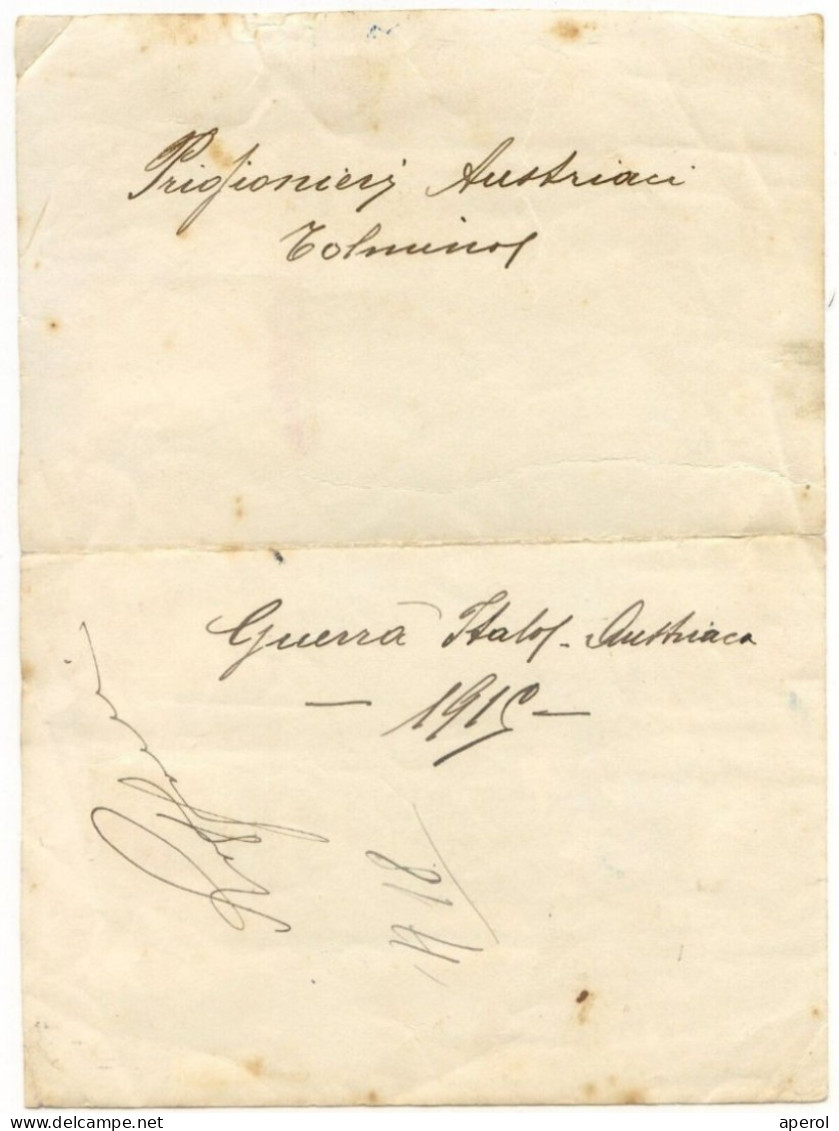 Prigionieri Austriaci
Tolmino
Guerra Italo-Austriaca
- 1915 -
www.delcampe.net
aperol